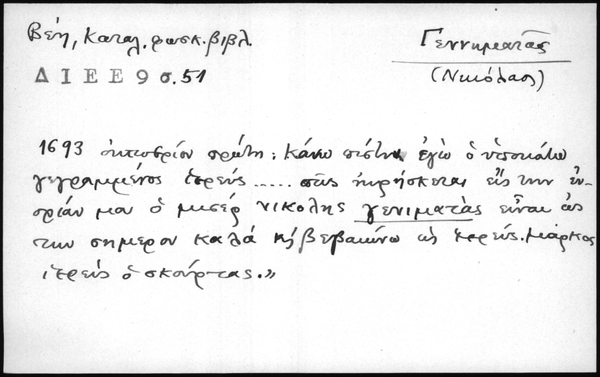 Βέη, Καταλ. φωσκ. βιβλ.
ΔΙΕΕ 9 σ. 51
Γεννηματᾶς
(Νικόλαος)
1693 ὀκτωβρίου πρώτη: Κάνω πίστην ἐγὼ ὁ ὑποκάτω
γεγραμμένος ἱερεὺς ..... πῶς ηὑρήσκεται εἰς τὴν ἐν-
ορίαν μου ὁ μισὲρ νικολης γενιματὰς εἶναι ὡς
την σημερον καλὰ κ(αὶ) βεβαιώνω ὡς ἱερεύς. μάρκος
ἱερεὺς ὁ σκούρτας.»